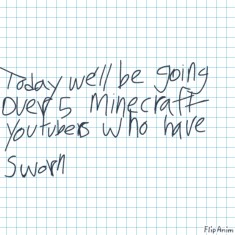 Today we'll be going
over 5 Minecraft
Youtubers who have
sworn
FlipAnim